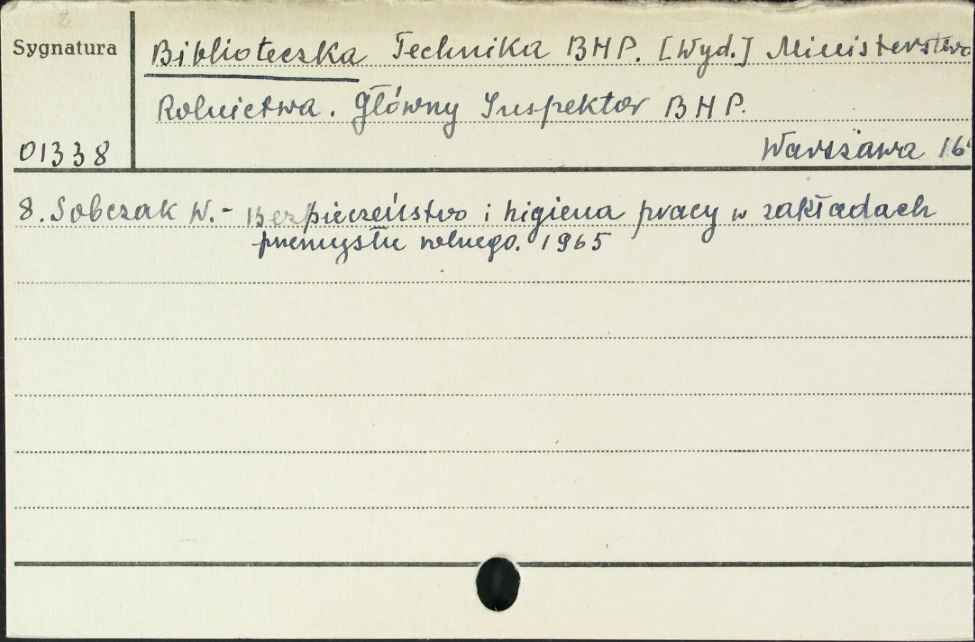 Sygnatura
Biblioteczka Technika BHP. [Wyd.] Ministerstwo
Rolnictwa. Główny Inspektor BHP.
01338
Warszawa 16
8. Sobczak W. - Bezpieczeństwo i higiena pracy w zakładach
przemysłu rolnego. 1965